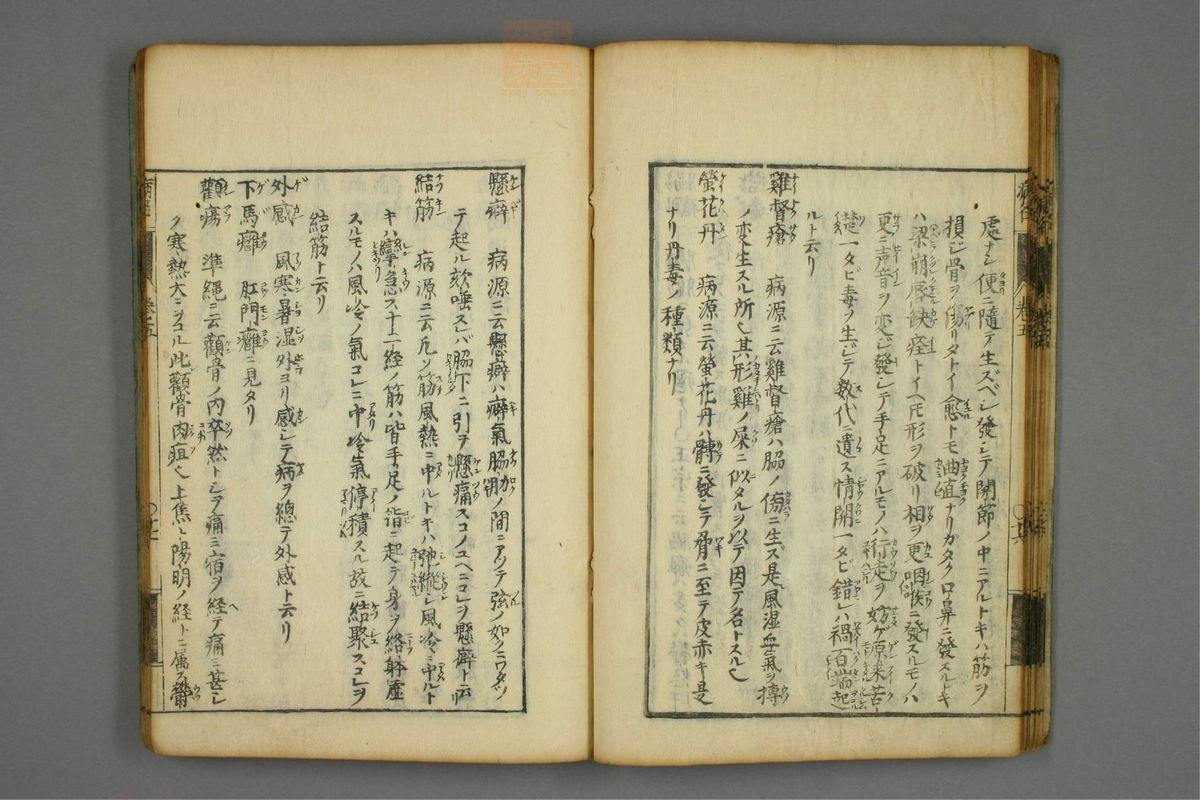 處ナシ便ニ隨テ生ズベシ發シテ開節ノ中ニアルトキハ筋ヲ
損ジ骨ヲ傷リタトイ愈トモ曲直ナリガタク口鼻ニ發スルトキ
ハ梁崩レ唇缺ケ痊トイヘ𪜈形ヲ破リ相ヲ更咽喉ニ發スルモノハ
更ニ声音ヲ変ジ發シテ手足ニアルモノハ行走ヲ妨ゲ原来苦
一タビ毒ヲ生ジテ数代ニ遺ス情開一タビ錯レハ禍百端起
ルト云リ
雞督瘡 病源ニ云雞督瘡ハ脇ノ傍ニ生ズ是風湿氣ヲ搏
ノ変生スル所也其形雞ノ屎ニ似タルヲ以テ因テ名トスル也
螢花丹 病源ニ云螢花丹ハ髆ニ發シテ脊ニ至テ皮赤キ是
ナリ丹毒ノ種類ナリ
懸癖 病源ニ云懸癖ハ癖氣脇肋ノ間ニアツテ弦ノ如クニワタツ
テ起ル欬唾スレバ脇下ニ引ヲ懸痛スコノユヘニコレヲ懸癖ト云リ
結筋 病源ニ云凡ソ筋風熱ニ中ルトキハ弛縦シ風冷ニ中ルト
キハ攣急ス十二経ノ筋ハ皆手足ノ指ニ起テ身ヲ絡躰虚
スルモノハ風冷ノ氣コレニ中冷氣停積スル故ニ結聚スコレヲ
結筋ト云リ
外感 風寒暑湿外ヨリ感シテ病ヲ總テ外感ト云リ
下馬癰 肛門癰ニ見タリ
顴瘍 準縄ニ云顴骨ノ内卒然トシテ痛ミ宿ヲ経テ痛ミ甚シ
ク寒熱大ニヲコル此顴骨肉疽也上焦ト陽明ノ経トニ属ス欝